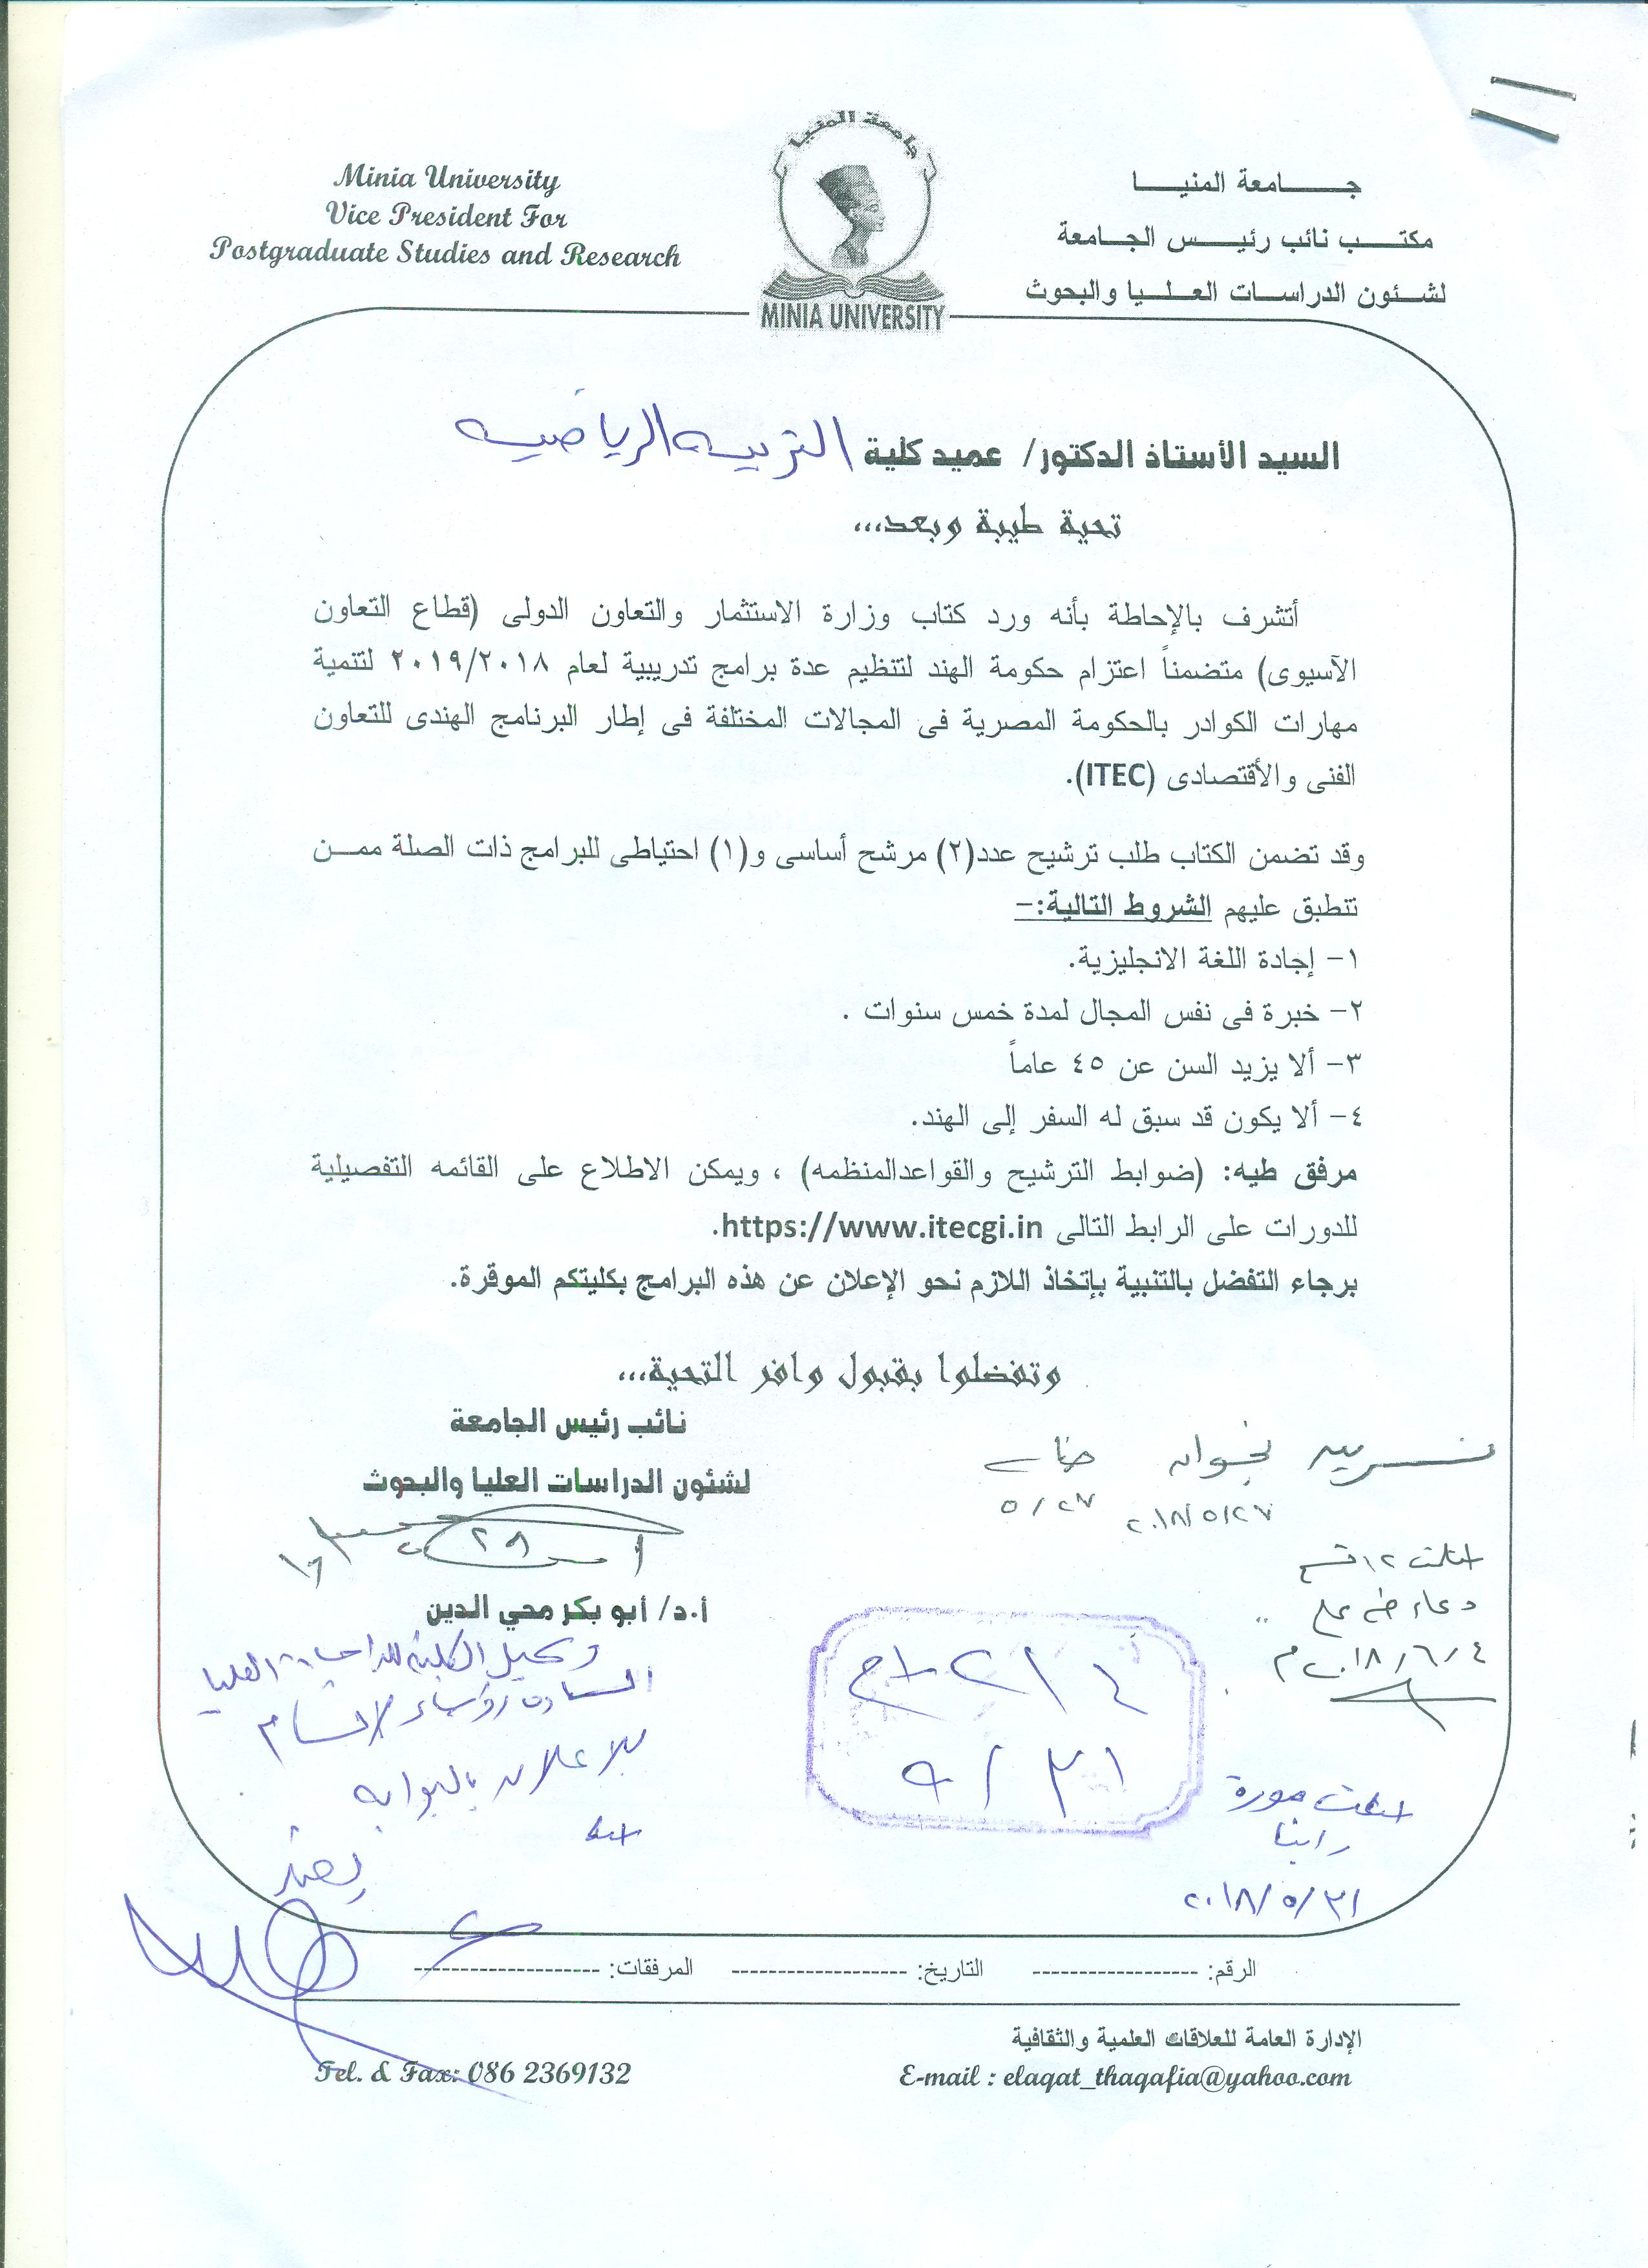 Minia University
Vice President For
Postgraduate Studies and Research
جامعة المنيا
MINIA UNIVERSITY
جـــــــامعة المنيـــــا
مكتـــــب نائب رئيـــــس الجـــامعة
لشـــئون الدراســات العـــلـــيا والبحوث
السيد الأستاذ الدكتور/ عميد كلية التربيه الرياضيه
تحية طيبة وبعد...
أتشرف بالإحاطة بأنه ورد كتاب وزارة الاستثمار والتعاون الدولى (قطاع التعاون
الآسيوى) متضمناً اعتزام حكومة الهند لتنظيم عدة برامج تدريبية لعام ٢٠١٩/٢٠١٨ لتنمية
مهارات الكوادر بالحكومة المصرية فى المجالات المختلفة فى إطار البرنامج الهندى للتعاون
الفنى والأقتصادى (ITEC).
وقد تضمن الكتاب طلب ترشيح عدد(٢) مرشح أساسى و(١) احتياطى للبرامج ذات الصلة ممـــن
تتطبق عليهم الشروط التالية:-
١- إجادة اللغة الانجليزية.
٢- خبرة فى نفس المجال لمدة خمس سنوات .
٣- ألا يزيد السن عن ٤٥ عاماً
٤- ألا يكون قد سبق له السفر إلى الهند.
مرفق طيه: (ضوابط الترشيح والقواعدالمنظمه) ، ويمكن الاطلاع على القائمه التفصيلية
للدورات على الرابط التالى https://www.itecgi.in.
برجاء التفضل بالتنبية بإتخاذ اللازم نحو الإعلان عن هذه البرامج بكليتكم الموقرة.
وتفضلوا بقبول وافر التحية...
نائب رئيس الجامعة
لشئون الدراسات العليا والبحوث
أ.د/ أبو بكر محي الدين
نجوان
٢٠١٨/٥/٢٧
٥/٢٧
دعاء
٢٠١٨/٦/٤ م
وكيل الكلية للدراسات العليا
السادة رؤساء الاقسام
للاعلان بالبوابه
صورة
٢٠١٨/٥/٣١
الرقم: ------------------ التاريخ: ------------------- المرفقات: --------------------
الإدارة العامة للعلاقات العلمية والثقافية
Tel. & Fax: 086 2369132
E-mail : elaqat_thaqafia@yahoo.com